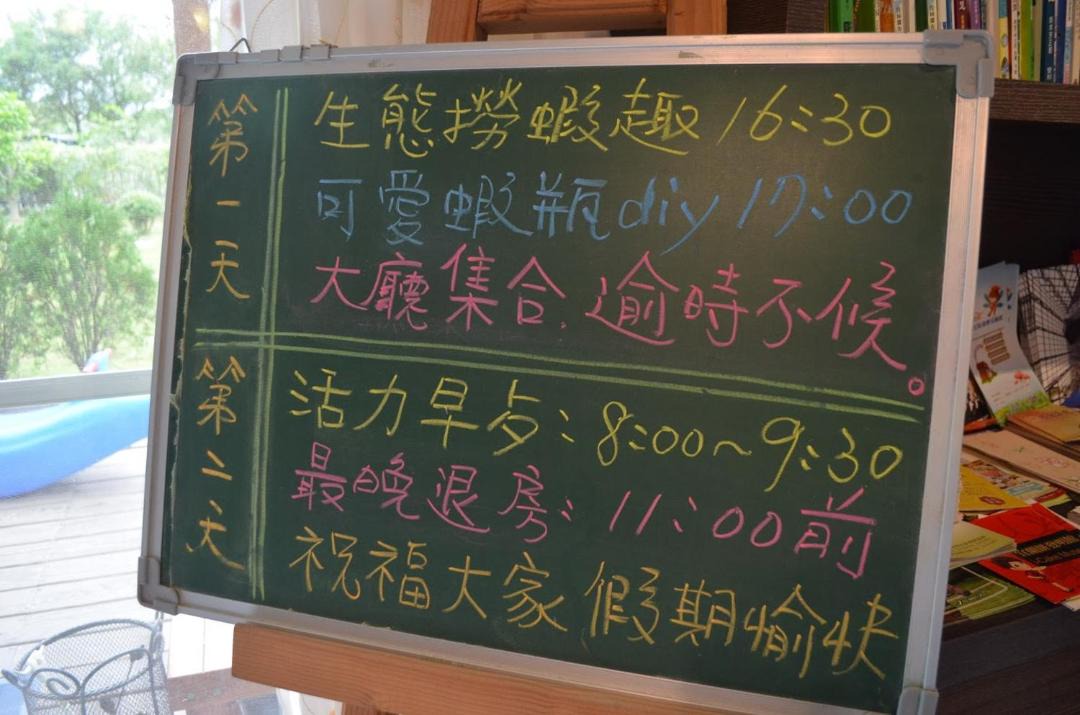 第一天
生態撈蝦趣 16:30
可愛蝦瓶diy 17:00
大廳集合.逾時不候。
第二天
活力早夕:8:00~9:30
最晚退房:11:00前
祝福大家 假期愉快